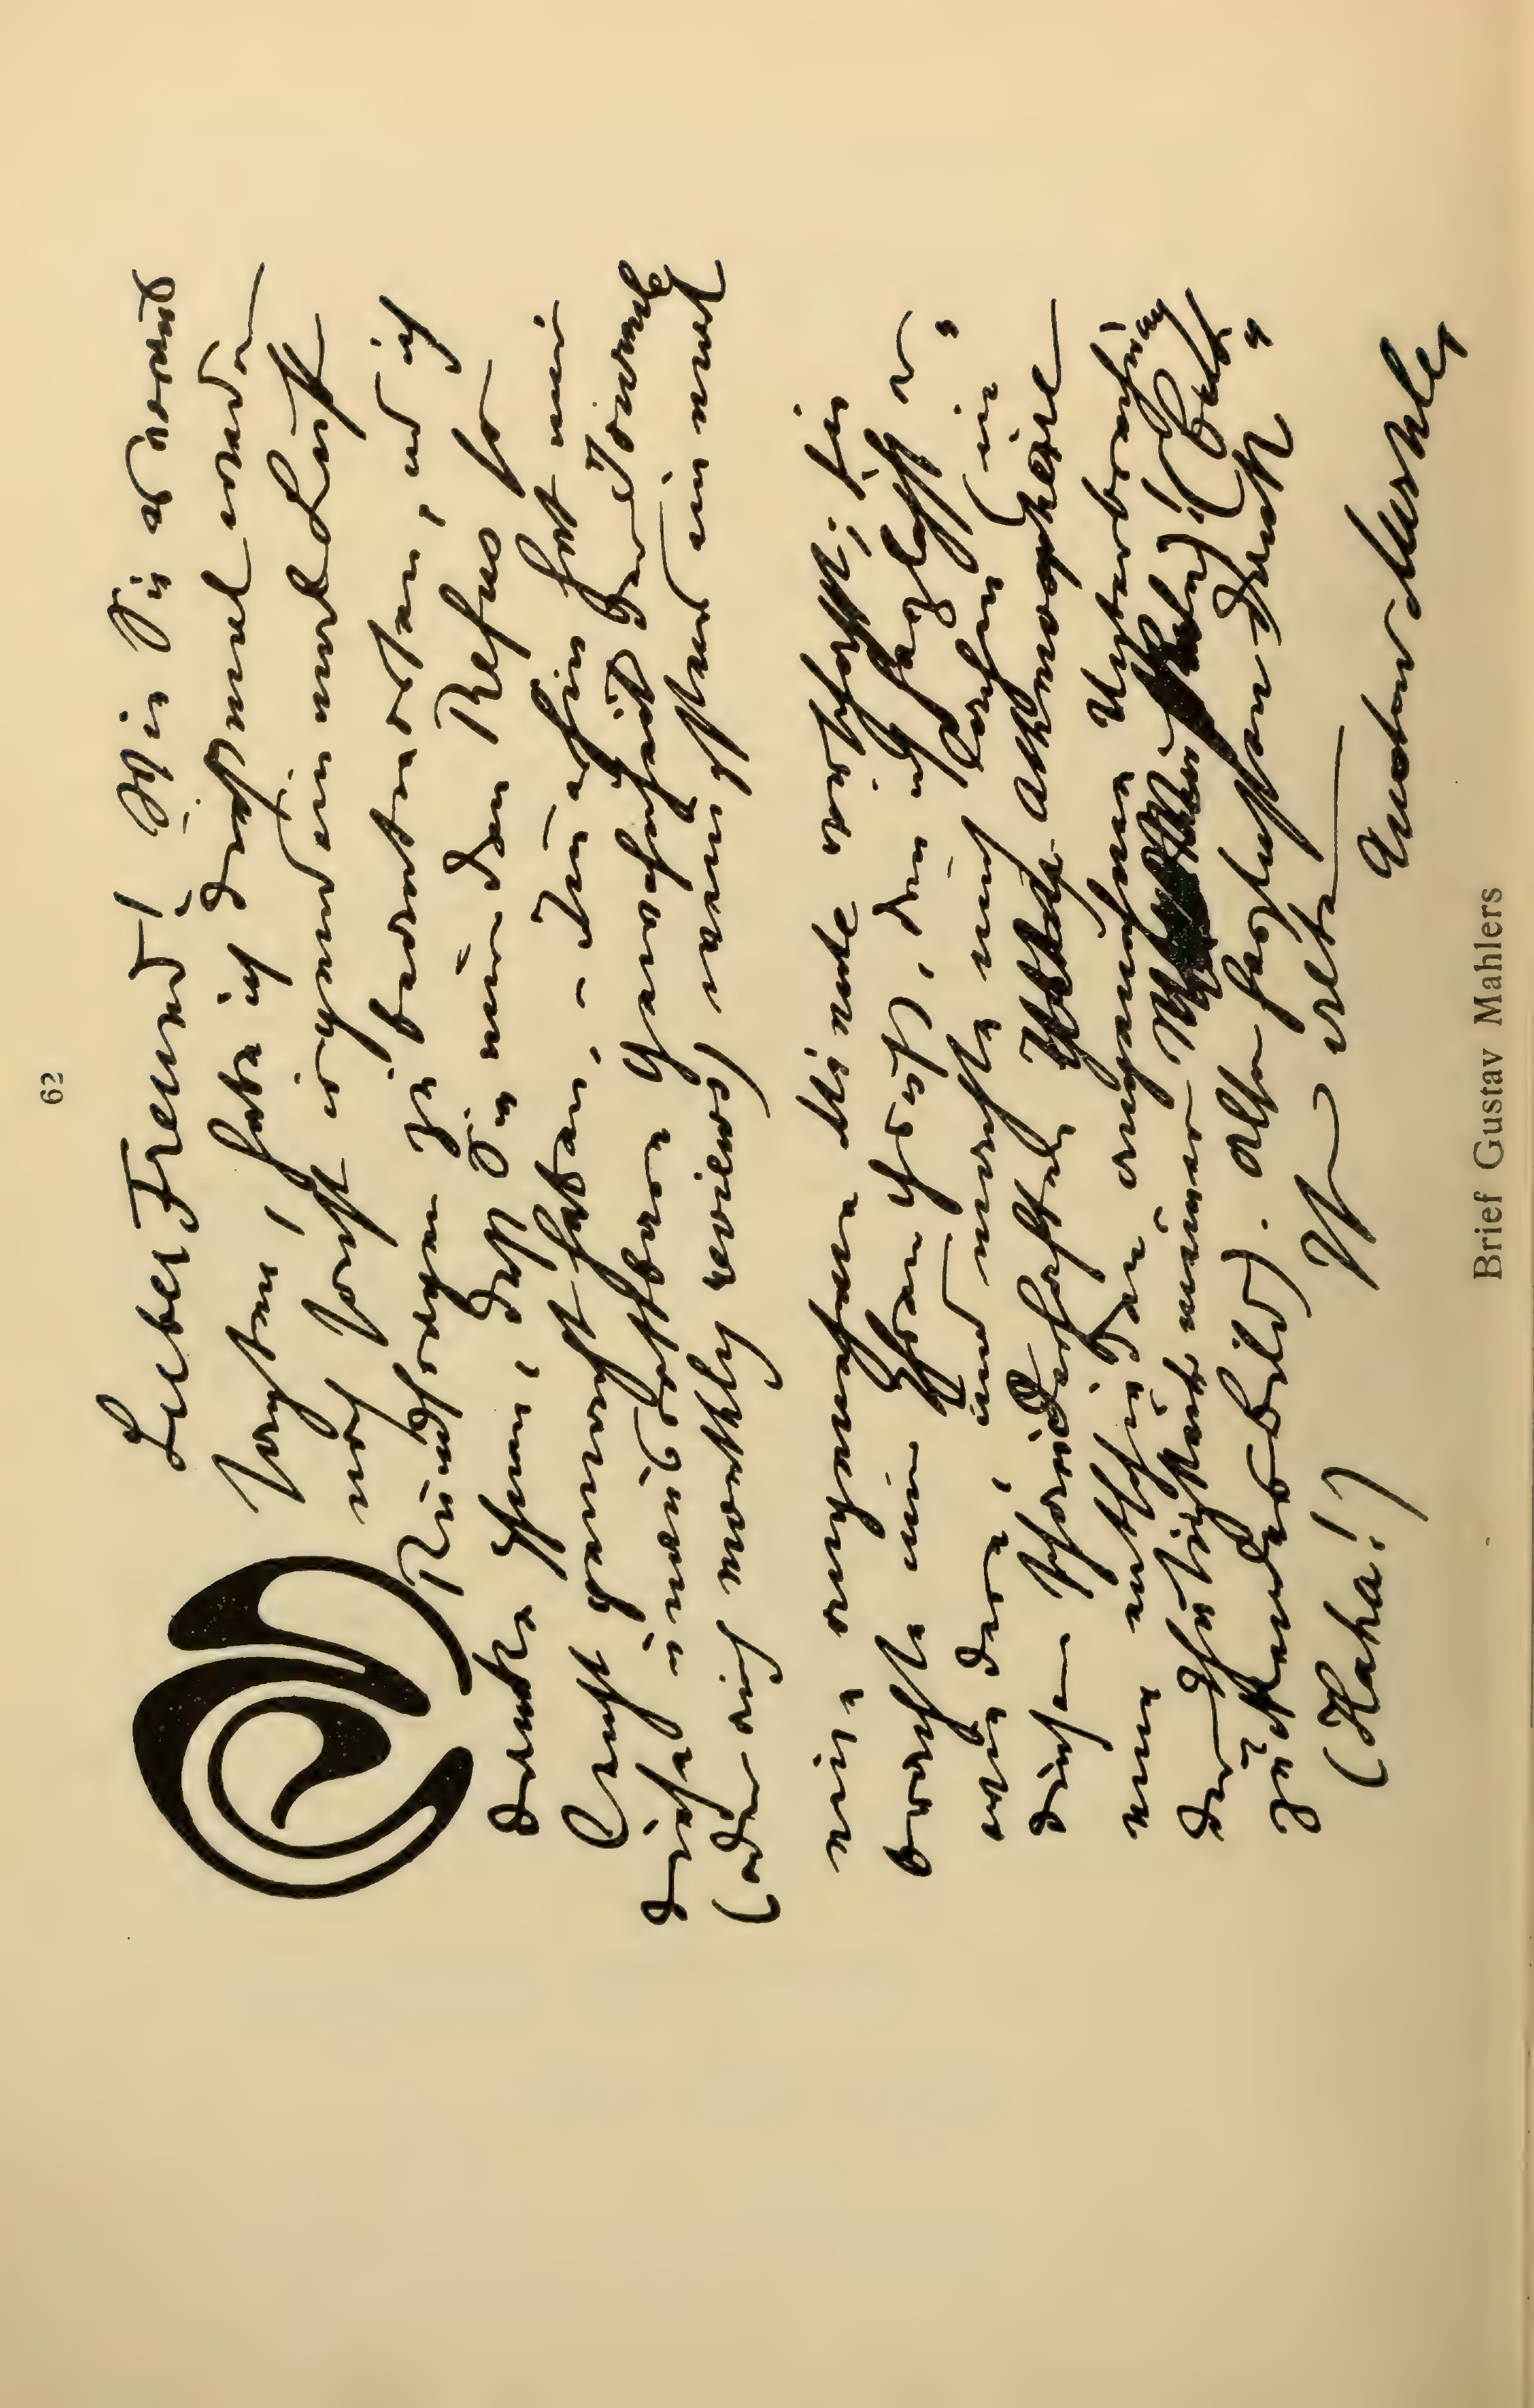 62
Lieber Freund! Wie Sie voraus
sagten, habe ich diesmal weder
noch sonst irgend einmal Lust
Rundfragen zu beantworten, und ich
danke Ihnen, dass Sie mir den Refus so
leicht gemacht haben. – Immerhin hat mir
diese unausrottbare Gewohnheit der Journale
(oder auch monthly reviews) wenigstens einmal
eine angenehme Minute verschafft; sie
brachte mir Ihren Gruß, den ich herzlichst
erwidere, und machte mich lachen (in
dieser schauderhaften Atmosphäre
eine entschieden angenehme Unterbrechung
der Thätigkeit meiner
zuckender Bild). Also herzlichsten Dank
Ihr alter
(Haha!)
Gustav Mahler
Brief Gustav Mahlers